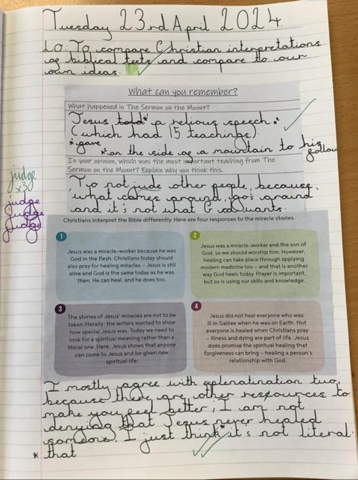 Tuesday 23rd April 2024
L.O. To compare Christian interpretations
of biblical texts and compare to our
own ideas.
What can you remember?
What happened in The Sermon on the Mount?
Jesus told* a relious speech
(which had 15 teachings).
*gave
*on the side of a mountain to his
follow
In your opinion, which was the most important teaching from The
Sermon on the Mount? Explain why you think this.
To not jude other people, because,
what comes around, goes around
and it's not what G-d wants
judge
x3
judge
judge
judge
Christians interpret the Bible differently. Here are four responses to the miracle stories.
1
Jesus was a miracle-worker because he was
God in the flesh. Christians today should
also pray for healing miracles – Jesus is still
alive and God is the same today as he was
then. He can heal, and he does too.
2
Jesus was a miracle-worker and the son of
God, so we should worship him. However,
healing can take place through applying
modern medicine too – and that is another
way God heals today. Prayer is important,
but so is using our skills and knowledge.
3
The stories of Jesus' miracles are not to be
taken literally: the writers wanted to show
how special Jesus was. Today we need to
look for a spiritual meaning rather than a
literal one. Here, Jesus shows that anyone
can come to Jesus and be given new
spiritual life.
4
Jesus did not heal everyone who was
ill in Galilee when he was on Earth. Not
everyone is healed when Christians pray
– illness and dying are part of life. Jesus
does promise the spiritual healing that
forgiveness can bring – healing a person's
relationship with God.
I mostly agree with two,
because there are other resources to
make you feel better, I am not
denying that Jesus never healed
someone. I just think* it's not literal.
* that